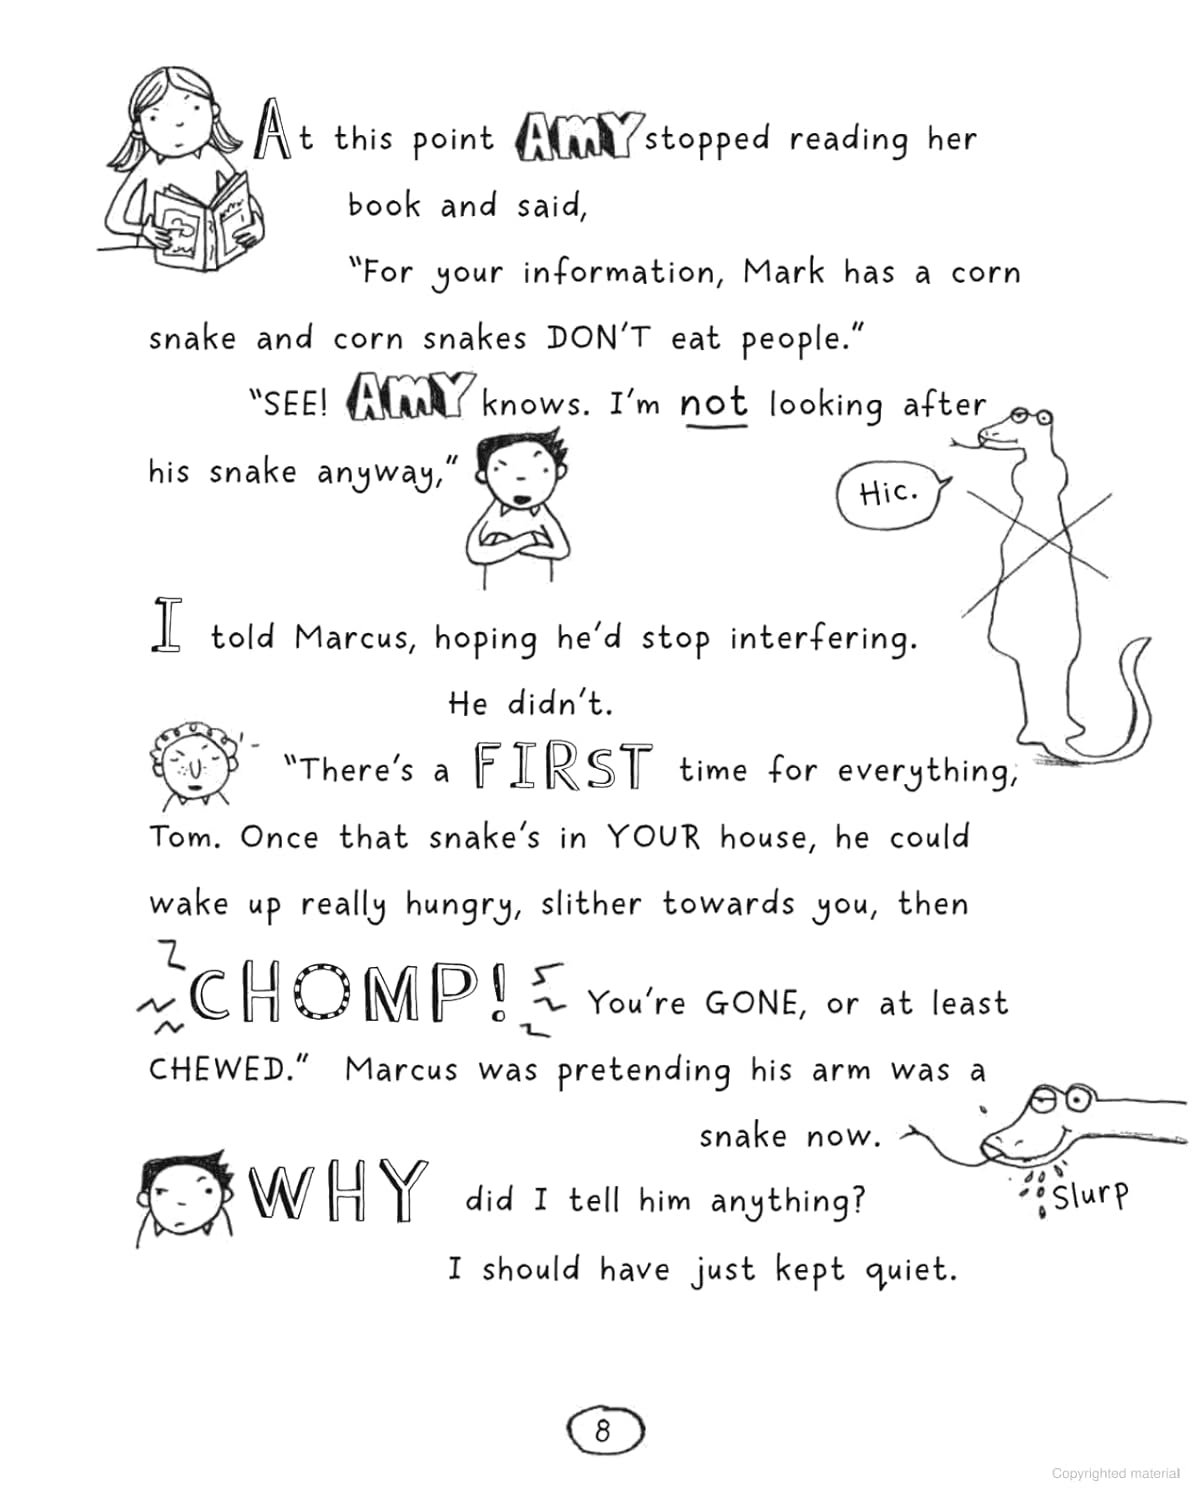 At this point AMY stopped reading her
book and said,
"For your information, Mark has a corn
snake and corn snakes DON'T eat people."
"SEE! AMY knows. I'm not looking after
his snake anyway,"
Hic.
I told Marcus, hoping he'd stop interfering.
He didn't.
"There's a FIRST time for everything,
Tom. Once that snake's in YOUR house, he could
wake up really hungry, slither towards you, then
CHOMP! You're GONE, or at least
CHEWED." Marcus was pretending his arm was a
snake now.
Slurp
WHY did I tell him anything?
I should have just kept quiet.
8
Copyrighted material